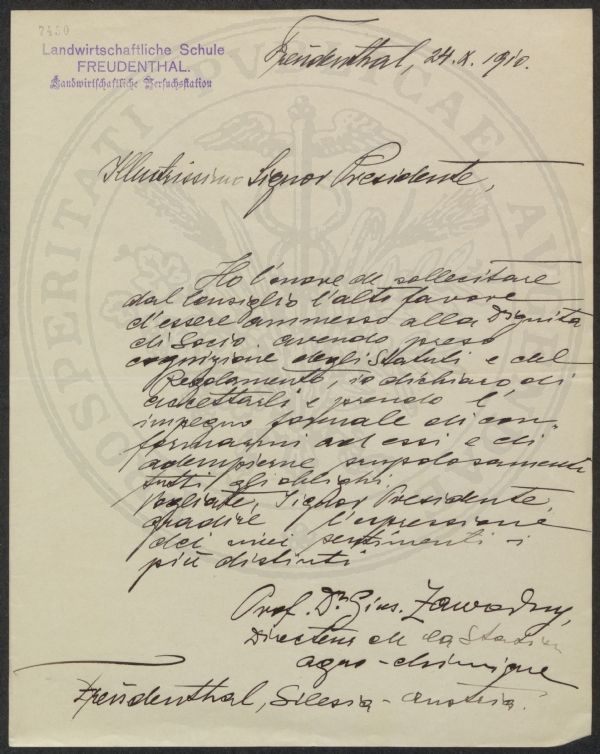 7450
Landwirtschaftliche Schule
FREUDENTHAL.
Landwirtschaftliche Versuchsstation
Freudenthal, 24. X. 1910.
Illustrissimo Signor Presidente,
Ho l'onore di sollecitare
dal Consiglio l'alto favore
d'essere ammesso alla Dignità
di Socio. avendo preso
cognizione degli Statuti e del
Regolamento, io dichiaro di
accettarli e prendo l'
impegno formale di con-
formarmi ad essi e di
adempierne scrupolosamente
tutti gli oblighi.
Vogliate, Signor Presidente,
gradire l'espressione
dei miei sentimenti i
più distinti
Prof. Dr. Gius. Zawodny,
Directeur de la Station
agro-chimique
Freudenthal, Silesia - Austria.
PROSPERITATI PUBLICAE